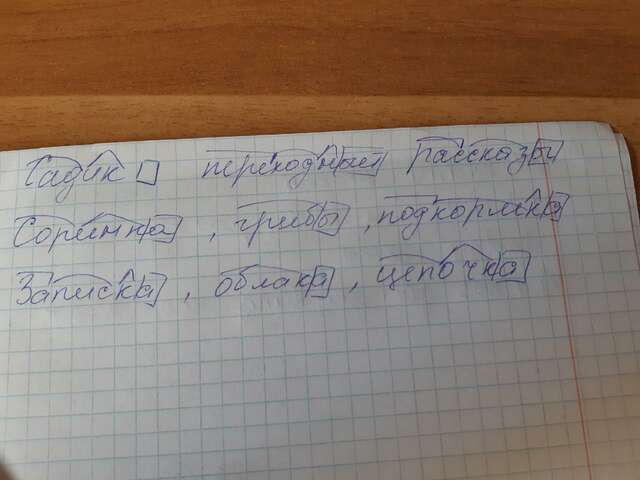 Садик переходный рассказы
Соринка, грибы, подкормка
Записка, облака, цепочка